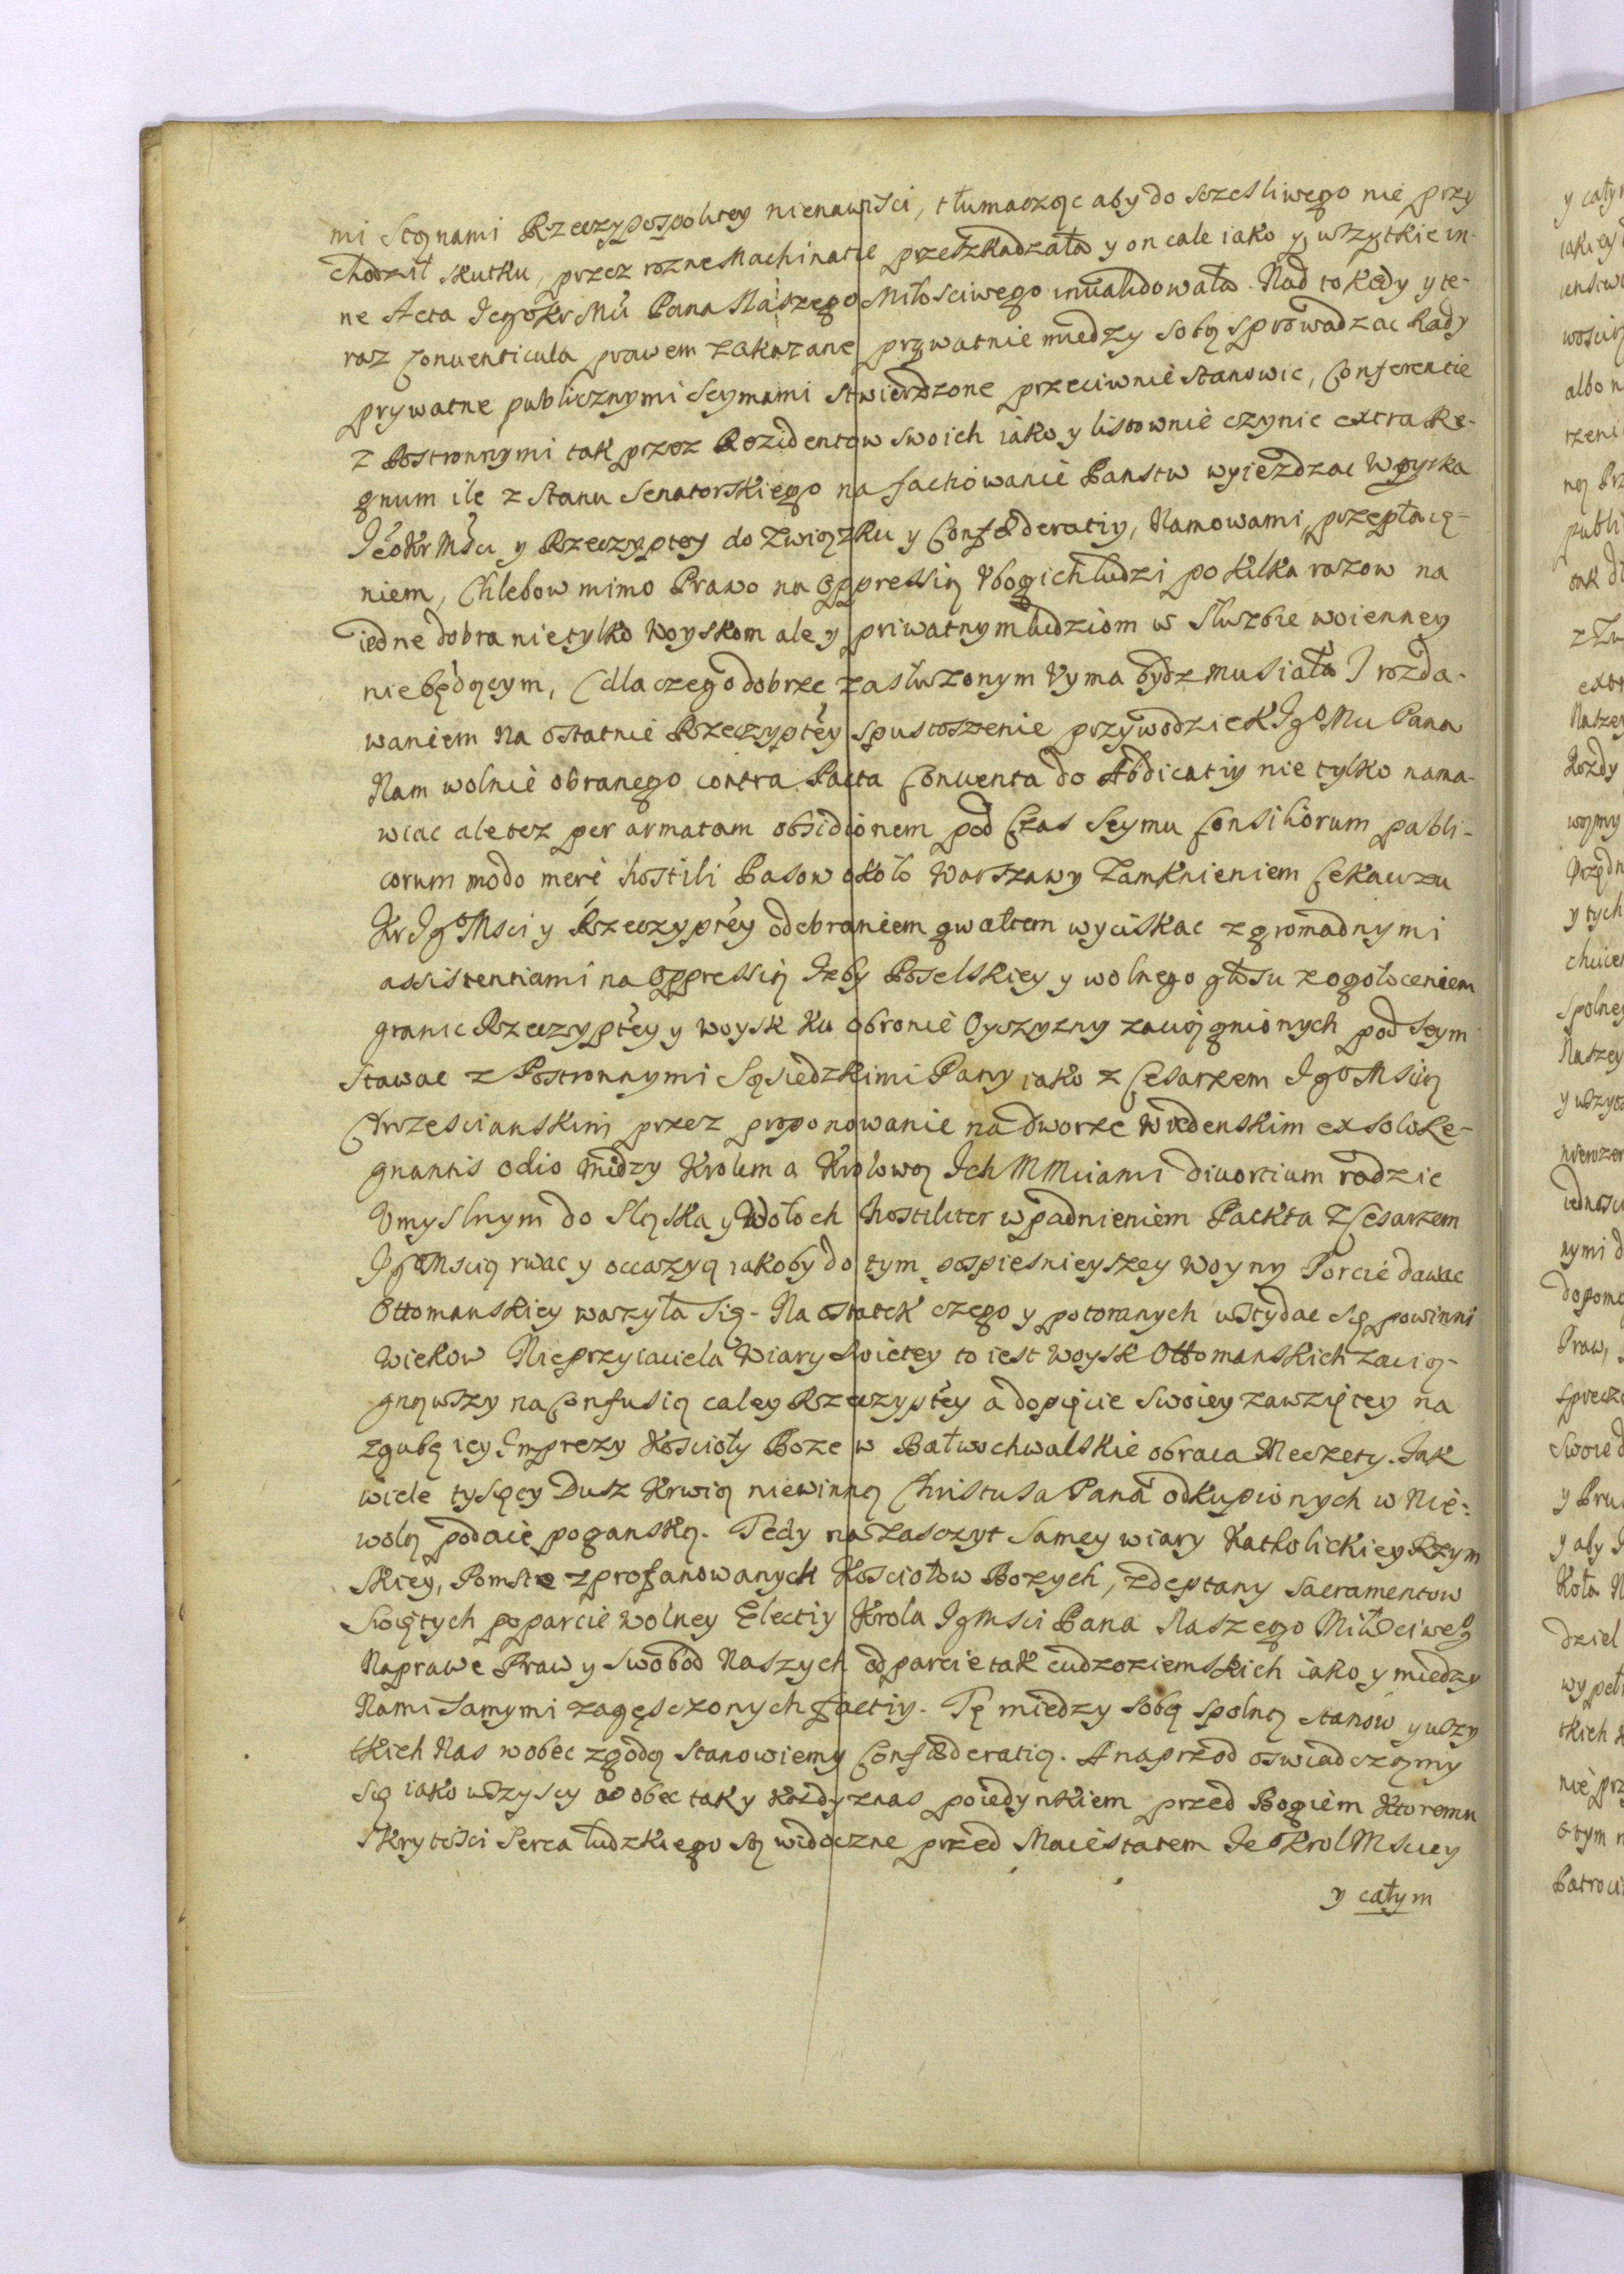 mi Scęnami Rzeczypospolitey nienawisci, tłumacząc aby do szczesliwego nie przy
chodził skutku, przez rozne Machinatie przeszkadzała y on cale iako y wszytkie in-
ne Acta Jego Kr Mci Pana Naszego Miłosciwego inualidowała. Nad to kedy y te-
raz Conuenticula prawem zakazane prywatnie miedzy sobą sprowadzac Rady
prywatne publicznymi Seymami stwierdzone przeciwnie stanowic, Conferentie
z Postronnymi tak przez Rezidentow swoich iako y listownie czynic extra Re-
gnum ile z Stanu Senatorskiego na fachowanie Panstw wyiezdzac Woyska
Jeo Kr Mści y Rzeczyptey do Związku y Confœderatiy, Namowami, przepłacę-
niem, Chlebow mimo Prawo na Oppressią Vbogich ludzi po kilka razow na
iedne dobra nietylko Woyskom ale y priwatnym ludziom w Służbie woienney
niebędącym, (dla czego dobrze zasłużonym Vyma bydz musiała) rozda-
waniem Na ostatnie Rzeczyptey spustoszenie przywodzic K Jgo Mci Pana
Nam wolnie obranego contra Pacta Conuenta do Abdicatiy nie tylko nama-
wiac ale tez per armatam obsidionem pod Czas Seymu Consiliorum publi-
corum modo merè hostili Pasow około Warszawy Zamknieniem Cekauzu
Kr Jgo Msci y Rzeczyptey odebraniem gwałtem wyciskac zgromadnymi
assistentiami na Oppressią Izby Poselskiey y wolnego głosu z ogołoceniem
granic Rzeczyptey y Woysk ku obronie Oyczyzny zaciągnionych pod Seym
Stawac z Postronnymi Sąsiedzkimi Pany iako z Cesarzem Jgo Mscią
Chrzescianskim przez proponowanie na dworze Wiedenskim ex solo Re-
gnantis odio między Krolem a Krolową Ich MMciami diuortium radzic
Vmyslnym do Sląska y Wołoch hostiliter wpadnieniem Packta z Cesarzem
Jgo Mscią rwac y occazyą iakoby do tym pospiesnieyszey Woyny Porcie dawac
Ottomanskiey wazyła się. Na ostatek czego y potomnych wstydac się powinni
Wiekow Nieprzyiaciela Wiary Swietey to iest Woysk Ottomanskich zacią-
gnąwszy na Confusią całey Rzeczyptey a dopięcie Swoiey zawziętey na
zgubę iey Imprezy Kościoły Boze w Bałwochwalskie obraca Meczety. Jak
wiele tysięcy Dusz Krwią niewinną Christusa Pana odkupionych w Nie-
wolą podaie poganską. Tedy na zasczyt Samey wiary Katholickiey Rzym
skiey, Pomstę zprofanowanych Kosciołow Bozych, zdeptany Sacramentow
Swiętych poparcie wolney Electiy Krola Jgmsci Pana Naszego Miłosciweg
Naprawe Praw y Swobod Naszych odparcie tak cudzoziemskich iako y miedzy
Nami Samymi zagęsczonych factiy. Tę miedzy Sobą spolną stanow y wszy
tkich Nas wobec zgodą stanowiemy Confœderatią. A naprzod oswiadczamy
się iako wszyscy wobec tak y kozdy z nas poiedynkiem przed Bogiem Ktoremu
Skrytosci Serca ludzkiego są widoczne przed Maiestatem Je Krol Msciey
y całym